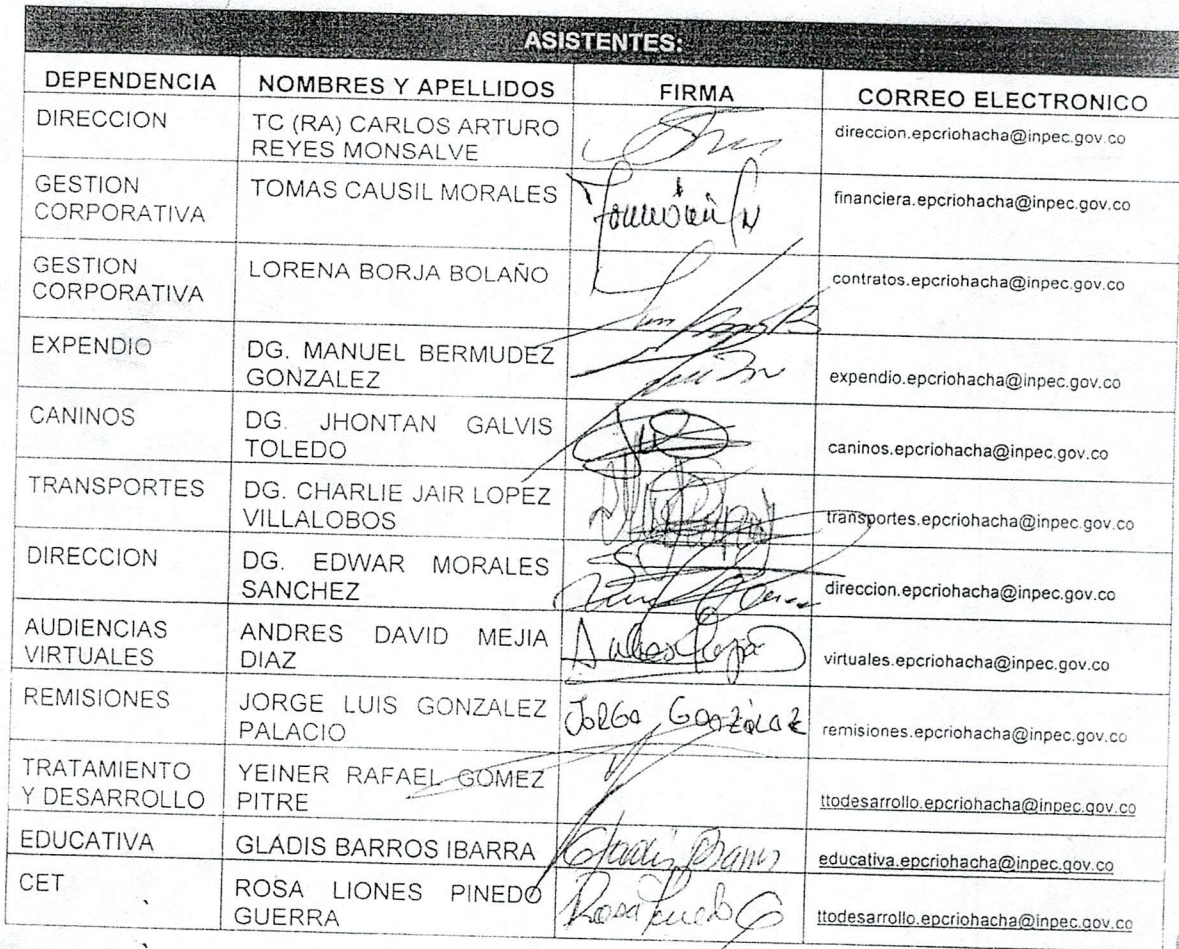 ASISTENTES:
DEPENDENCIA NOMBRES Y APELLIDOS FIRMA CORREO ELECTRONICO
DIRECCION TC (RA) CARLOS ARTURO direccion.epcriohacha@inpec.gov.co
REYES MONSALVE
GESTION TOMAS CAUSIL MORALES financiera.epcriohacha@inpec.gov.co
CORPORATIVA
GESTION LORENA BORJA BOLAÑO contratos.epcriohacha@inpec.gov.co
CORPORATIVA
EXPENDIO DG. MANUEL BERMUDEZ
GONZALEZ expendio.epcriohacha@inpec.gov.co
CANINOS DG. JHONTAN GALVIS
TOLEDO caninos.epcriohacha@inpec.gov.co
TRANSPORTES DG. CHARLIE JAIR LOPEZ
VILLALOBOS transportes.epcriohacha@inpec.gov.co
DIRECCION DG. EDWAR MORALES
SANCHEZ direccion.epcriohacha@inpec.gov.co
AUDIENCIAS ANDRES DAVID MEJIA
VIRTUALES DIAZ virtuales.epcriohacha@inpec.gov.co
REMISIONES JORGE LUIS GONZALEZ JORGE GONZALEZ
PALACIO remisiones.epcriohacha@inpec.gov.co
TRATAMIENTO YEINER RAFAEL GOMEZ
Y DESARROLLO PITRE ttodesarrollo.epcriohacha@inpec.gov.co
EDUCATIVA GLADIS BARROS IBARRA Gladis Barros educativa.epcriohacha@inpec.gov.co
CET ROSA LIONES PINEDO Rosa Pinedo G
GUERRA ttodesarrollo.epcriohacha@inpec.gov.co